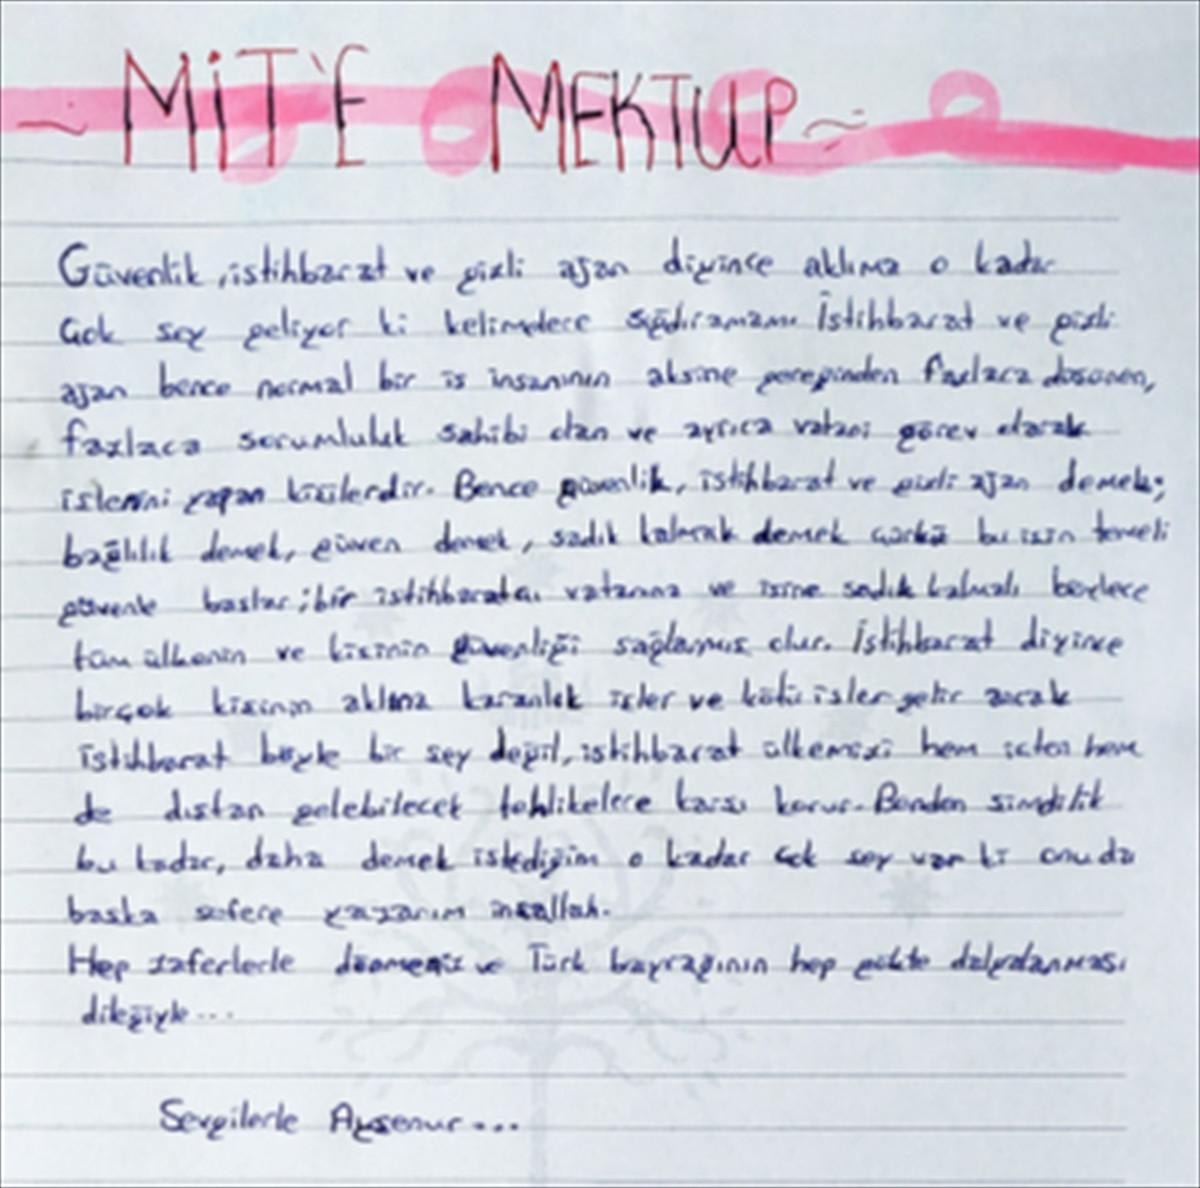 ~ MİT'E MEKTUP ~
Güvenlik, istihbarat ve gizli ajan diyince aklıma o kadar
çok şey geliyor ki kelimelere sığdıramam. İstihbarat ve gizli
ajan bence normal bir iş insanının aksine gereğinden fazlaca düşünen,
fazlaca sorumluluk sahibi olan ve ayrıca vatani görev olarak
işlerini yapan kişilerdir. Bence güvenlik, istihbarat ve gizli ajan demek;
bağlılık demek, güven demek, sadık kalmak demek çünkü bu işin temeli
güvenle başlar; bir istihbaratçı vatanına ve işine sadık kalmalı böylece
tüm ülkenin ve kişinin güvenliği sağlanmış olur. İstihbarat diyince
birçok kişinin aklına karanlık işler ve kötü işler gelir ancak
istihbarat böyle bir şey değil, istihbarat ülkemizi hem içten hem
de dıştan gelebilecek tehlikelere karşı korur. Benden şimdilik
bu kadar, daha demek istediğim o kadar çok şey var ki onu da
başka sefere yazarım inşallah.
Hep zaferlerle dönmeniz ve Türk bayrağının hep gökte dalgalanması
dileğiyle...
Sevgilerle Ayşenur...